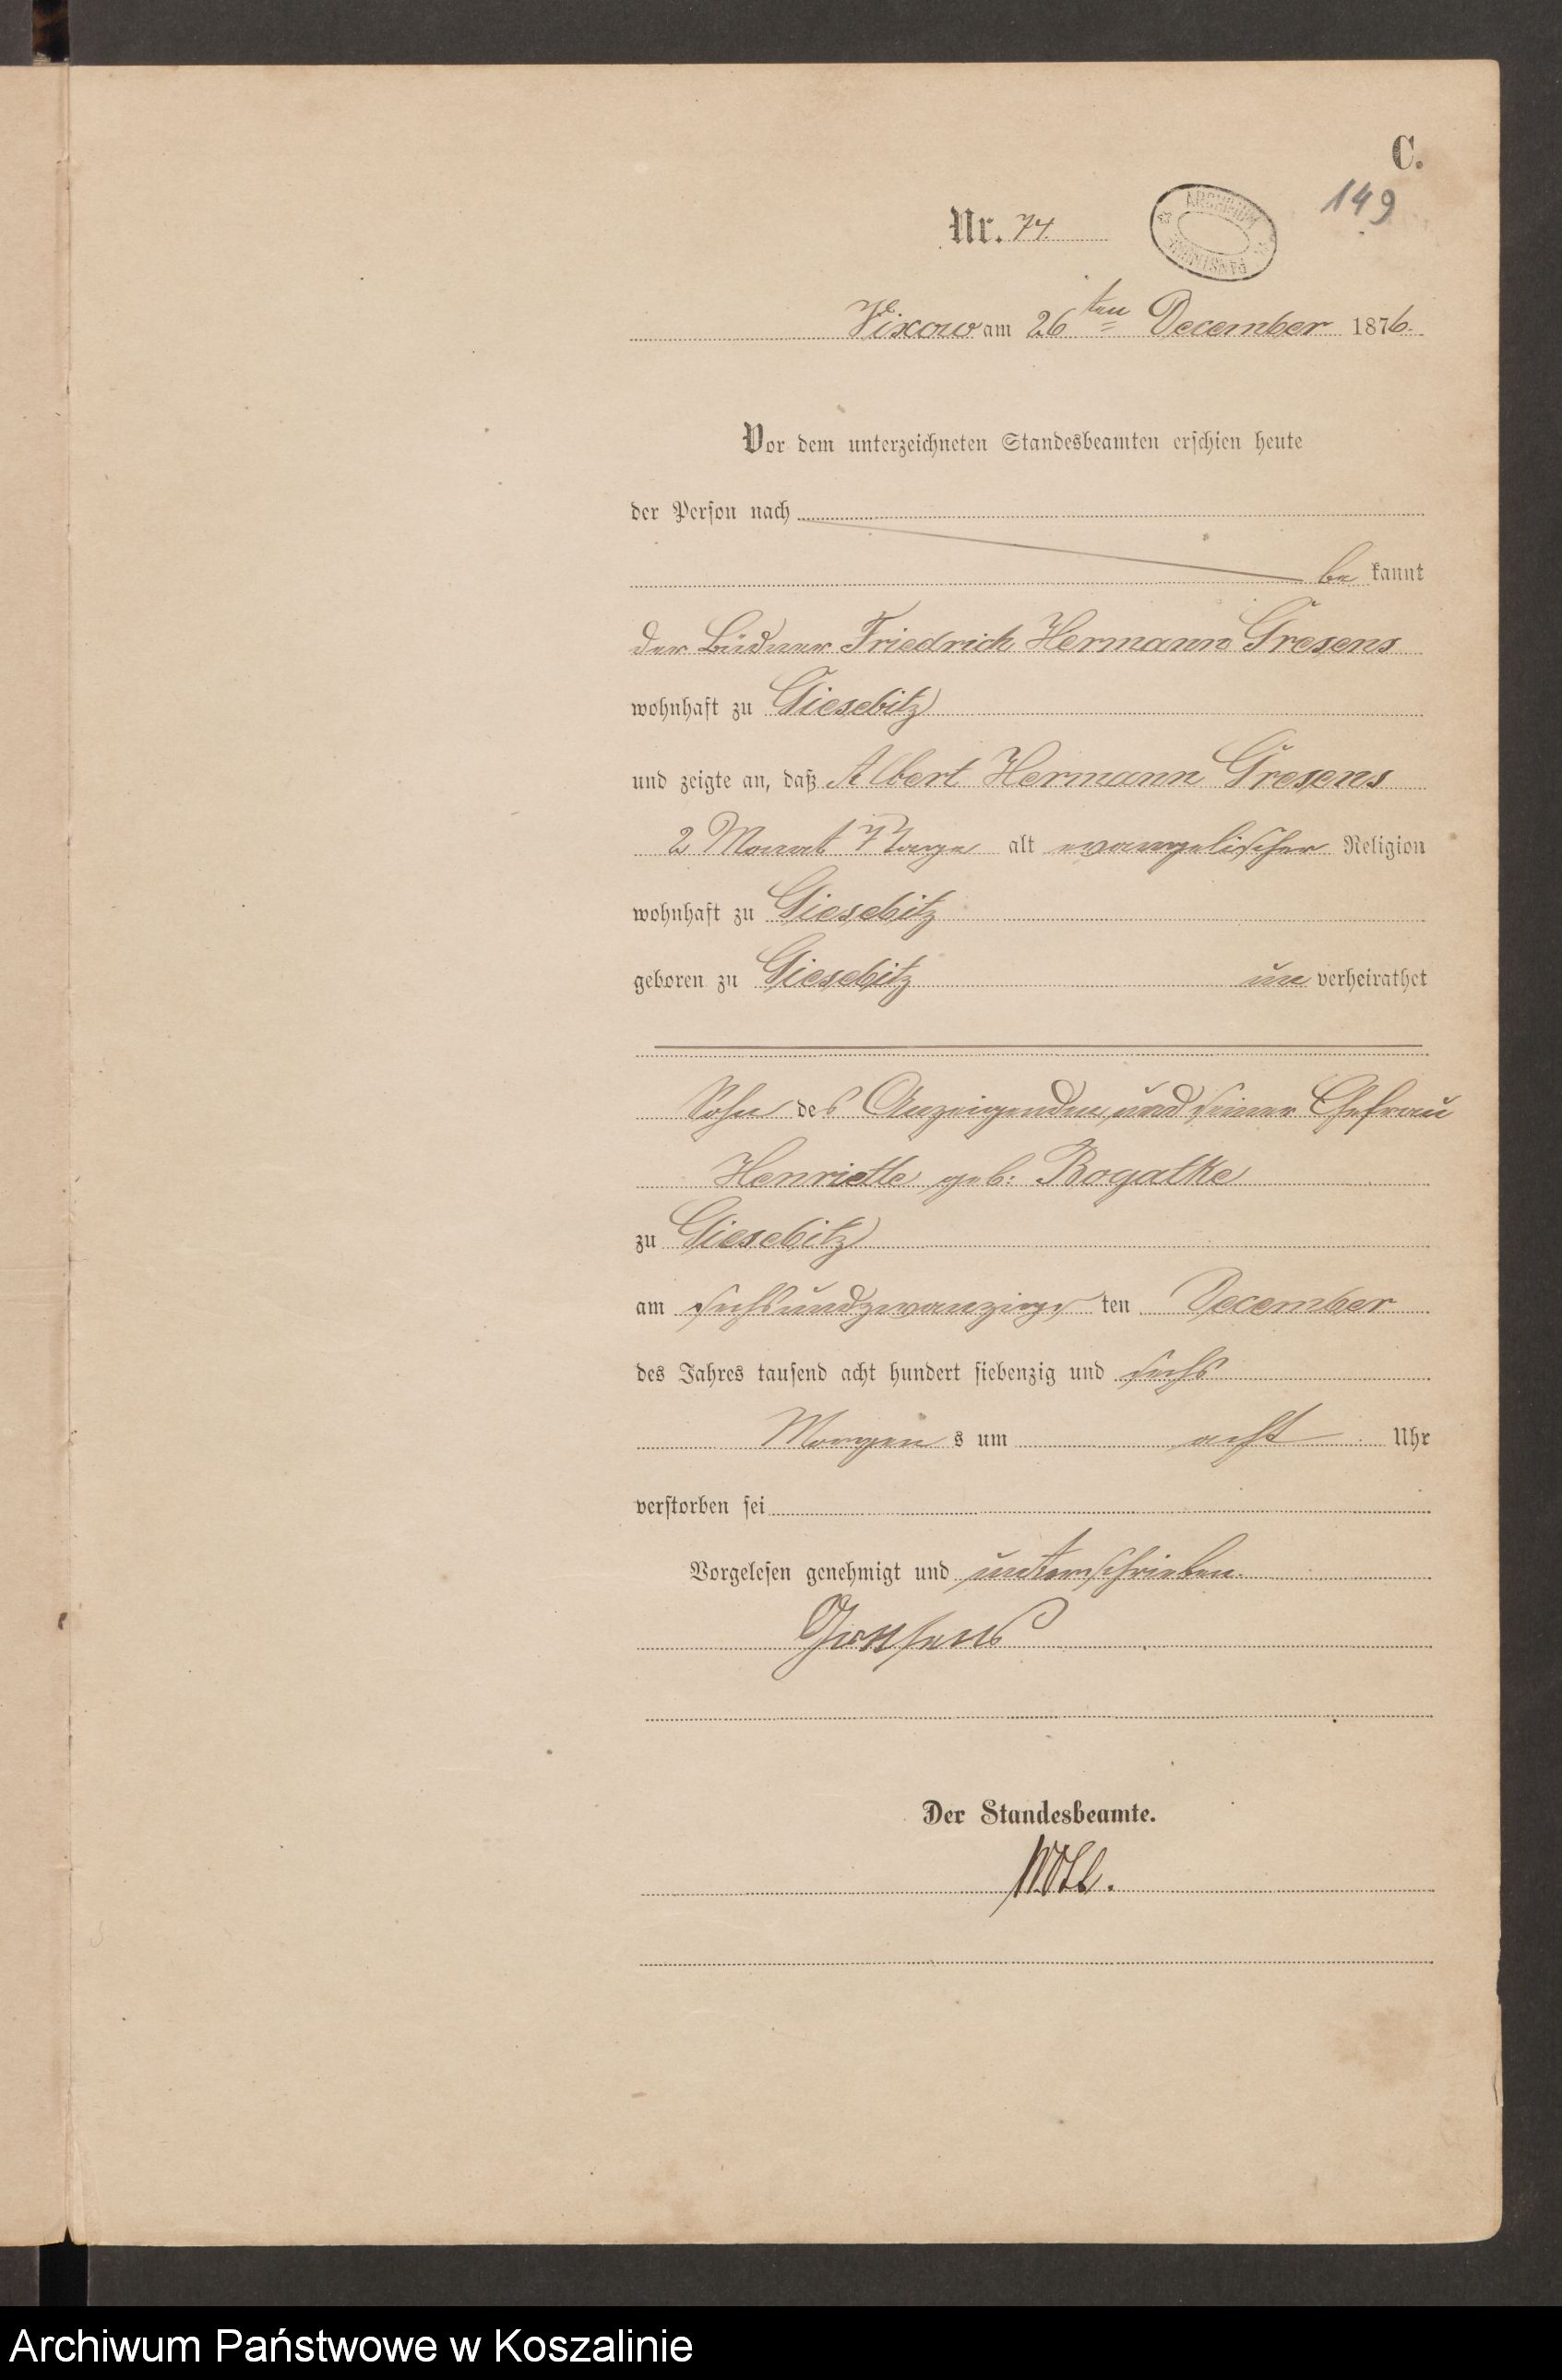 C.
149
ARCHIWUM
PAŃSTWOWE
Nr. 74.
Vixow am 26ten December 1876.
Vor dem unterzeichneten Standesbeamten erschien heute
der Person nach
be kannt
der Büdner Friedrich Hermann Gresens
wohnhaft zu Giesebitz
und zeigte an, daß Albert Hermann Gresens
2 Monat 7 Tage alt evangelischer Religion
wohnhaft zu Giesebitz
geboren zu Giesebitz un verheirathet
Sohn des Anzeigenden und seiner Ehefrau
Henriette geb: Rogatke
zu Giesebitz
am sechsundzwanzigs ten December
des Jahres tausend acht hundert siebenzig und sechs
Morgen s um acht Uhr
verstorben sei
Vorgelesen genehmigt und unterschrieben.
Der Standesbeamte.
Archiwum Państwowe w Koszalinie